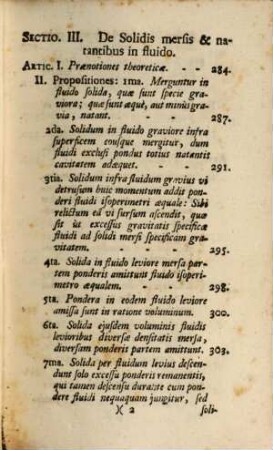 SECTIO. III. De Solidis mersis & na-
tantibus in fluido.
ARTIC. I. Prænotiones theoreticæ. - - 284.
II. Propositiones: 1ma. Merguntur in
fluido solida, quæ sunt specie gra-
viora; quæ sunt æquè, aut minus gra-
via, natant. - - - 287.
2da. Solidum in fluido graviore infra
superficem eousque mergitur, dum
fluidi exclusi pondus totius natantis
cavitatem adæquet. - - 291.
3tia. Solidum infra fluidum gravius vi
detrusum huic momentum addit pon-
deri fluidi isoperimetri æquale: Sibi
relictum ed vi sursum ascendit, quæ
fit ut excessus gravitatis specificæ
fluidi ad solidi mersi specificam gra-
vitatem. - - - 295.
4ta. Solida in fluido leviore mersa par-
tem ponderis amittunt fluido isoperi-
metro æqualem. - - 298.
5ta. Pondera in eodem fluido leviore
amissa sunt in ratione voluminum. 300.
6ta. Solida ejusdem voluminis fluidis
levioribus diversæ densitatis mersa,
diversam ponderis partem amittunt. 303.
7ma. Solida per fluidum levius descen-
dunt solo excessu ponderis remanentis,
qui tamen descensu durante cum pon-
dere fluidi nequaquam jungitur, sed
)( 2 soli-